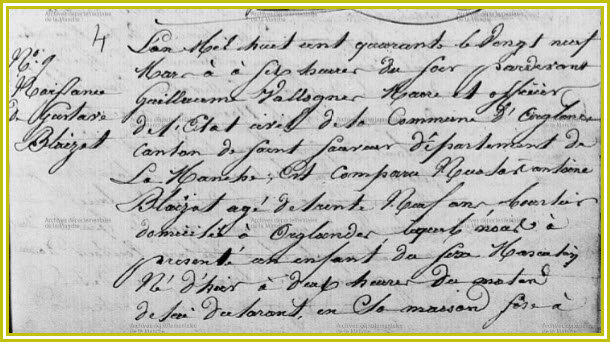 4
No. 9
Naissance
de Gustave
Blaizot
L'an Mil huit cent quarante le Vingt neuf
Mars à à six heures du soir pardevant
Guillaume Vallognes Maire et officier
de L'Etat civil de la Commune d'Orglandes
canton de Saint Sauveur département de
La Manche, Est comparu Nicolas antoine
Blaizot agé de trente Neuf ans
domicilié à Orglandes Lequel nous à
présenté un enfant du sexe Masculin
Né d'hier à deux heures du matin
de lui déclarant, en sa maison sise à
Archives départementales de la Manche